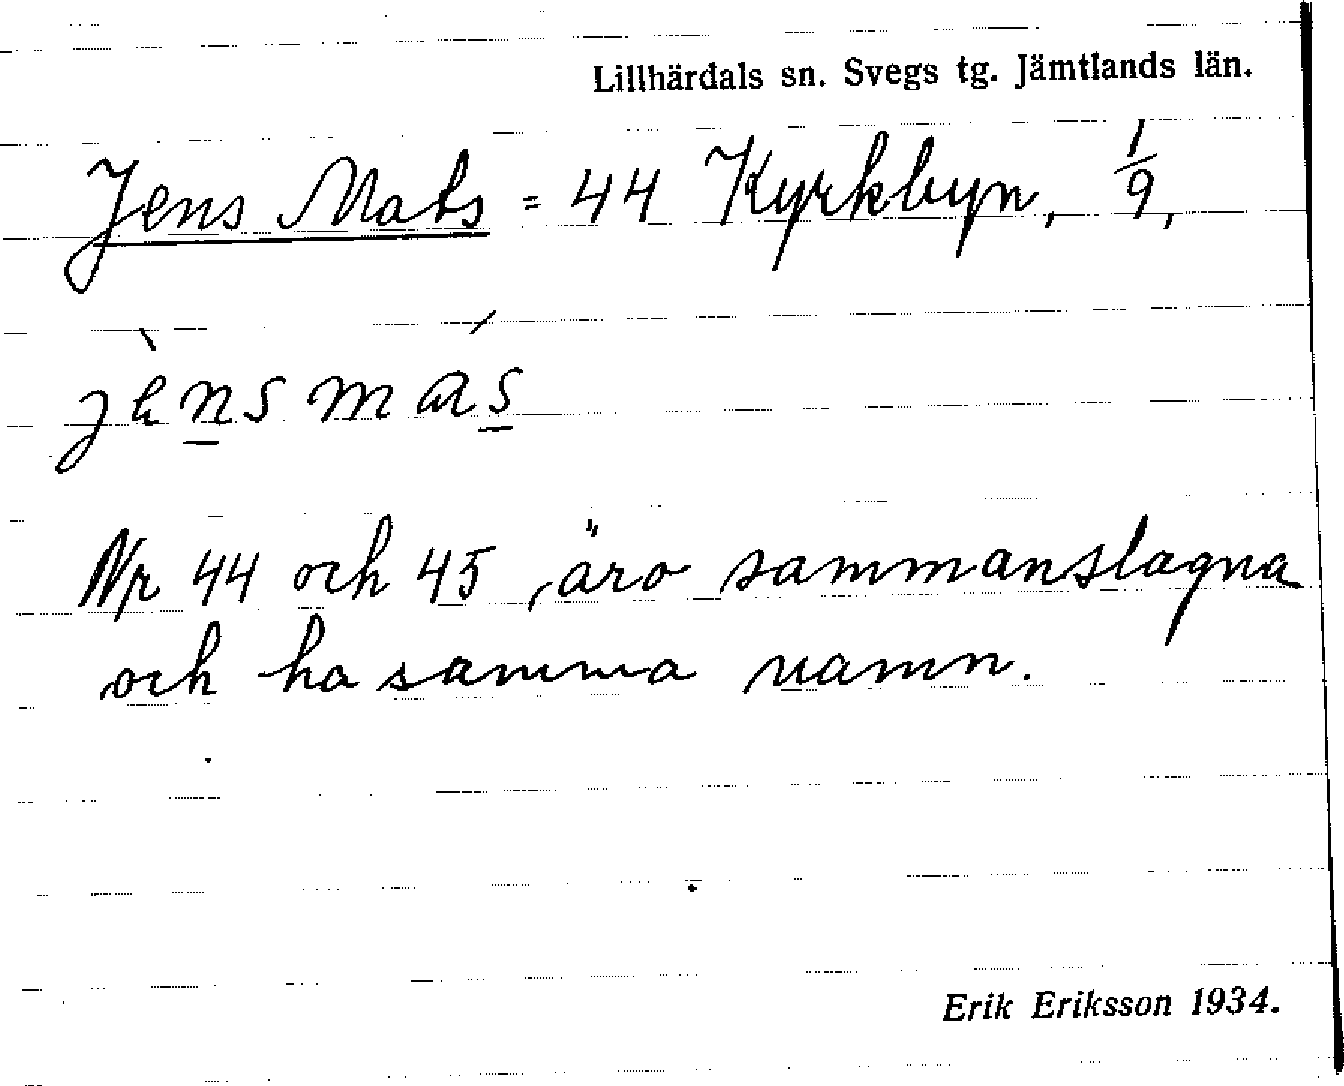 Lillhärdals sn. Svegs tg. Jämtlands län.
Jens Mats = 44 Kyrkbyn, 1/9,
jènsmás
Nr 44 och 45 äro sammanslagna
och ha samma namn.
Erik Eriksson 1934.